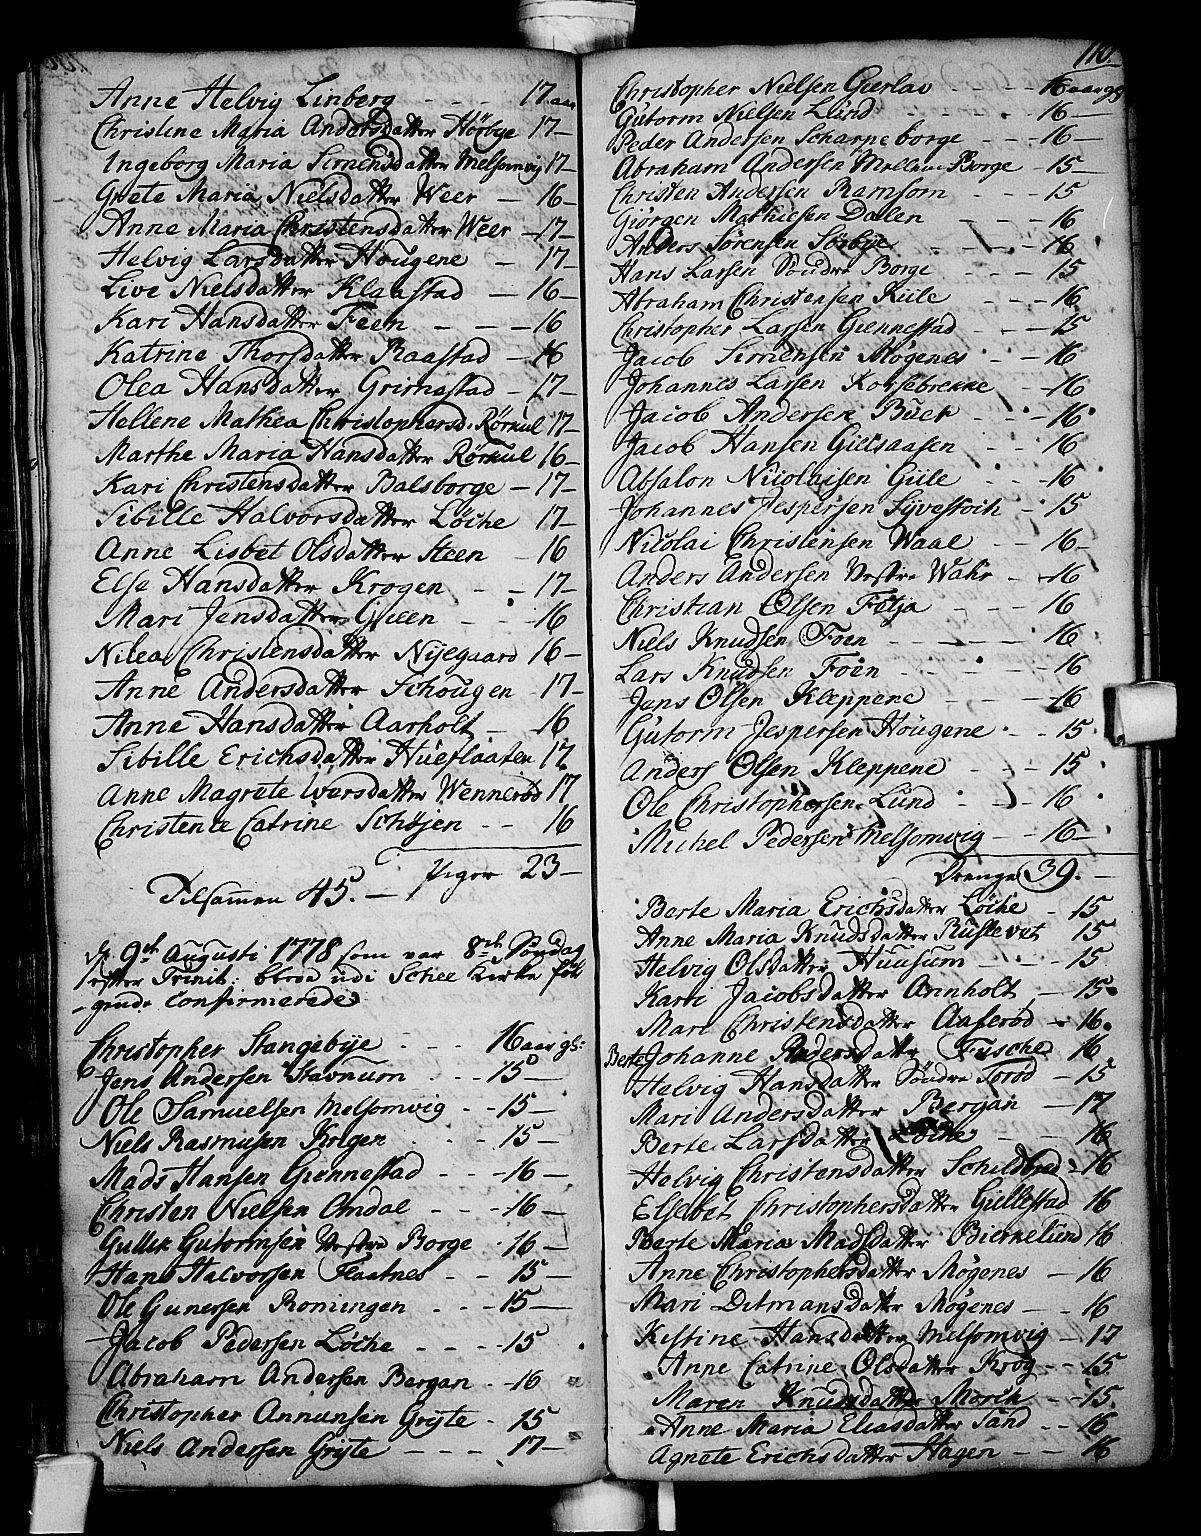 Anne Helvig Linberg - - - 17 aar
Christine Maria Andersdatter Hörbye 17 -
Ingeborg Maria Simensdatter Melsomvig 17 -
Grete Maria Nielsdatter Weer - 16 -
Anne Maria Christensdatter Weer - 17 -
Helvig Larsdatter Hougene - 17 -
Live Nielsdatter Klaastad - 16 -
Kari Hansdatter Feen - - - 16
Katrine Thorsdatter Raastad - 16
Olea Hansdatter Grimestad - 17 -
Hellene Mathea Christophersd. Rörkul 17 -
Marthe Maria Hansdatter Rörkul 16 -
Kari Christensdatter Balsborge - 17 -
Sibille Halvorsdatter Löche 17 -
Anne Lisbet Olsdatter Steen - 16
Else Hansdatter Krogen - - 17 -
Mari Jensdatter Gueen - - 16
Nilea Christensdatter Nijegaard 16 -
Anne Andersdatter Schougen - 17 -
Anne Hansdatter Aarholt - 16
Sibille Erichsdatter Hueflaaten 17
Anne Magrete Iversdatter Wenneröd 17
Christence Catrine Schöjen - - 16
Piger 23 -
Tilsammen 45. -
9de Augusti 1778 som var 8de Söndag
efter Trinit: blev udi Schee Kirke föl
gende Confirmerede
Christopher Stangebye - - - 16 aar gl:
Jens Andersen Stavnum - - - 15 -
Ole Samuelsen Melsomvig - - 15 -
Niels Rasmusen Kolgen - - - 15 -
Mads Hansen Giennestad - - 16 -
Christen Nielsen Omdal - - - 16 -
Gullik Gutormsen Vestre Borge - 16 -
Hans Halvorsen Flaatnes - - 15 -
Ole Gunersen Romingen - - - 15 -
Jacob Pedersen Löche - - - - 15
Abraham Andersen Bergan - - 16
Christopher Annunsen Gryte - 15
Niels Andersen Gryte - - 17 -
110.
Christopher Nielsen Gierlav - - - 16 aar gl
Gutorm Nielsen Lund - - - - 16 -
Peder Andersen Scharpeborge - - - 16 -
Abraham Andersen Mellem Borge - 15 -
Christen Andersen Ramsom - - 15
Giörgen Mathiesen Dalen - - - 16
Anders Sörensen Sörbye - - - 16
Hans Larsen Söndre Borge - - - 15
Abraham Christensen Kiile - - - 16
Christopher Larsen Giennestad - - - 15
Jacob Simensen Mögenes - - - 16
Johannes Larsen Korsebrekke - - 16
Jacob Andersen Buer - - - 16
Jacob Hansen Gilsaasen - - 16
Absalon Nicolaisen Giile - - - 16
Johannes Jespersen Syvestoch - 15
Nicolai Christensen Waal - - 16 -
Anders Andersen Vestre Wahr - - 16
Christian Olsen Fetja - - - 16
Niels Knudsen Foen - - - - 16
Lars Knudsen Foen - - - - 16
Jens Olsen Kleppene - - - 16
Gutorm Jespersen Hougene - - 15
Anders Olsen Kleppene - - - 15
Ole Christophersen Lund - - - 16
Michel Pedersen Melsomvig - - 16 -
Drenge 39. -
Berte Maria Erichsdatter Löche - 15
Anne Maria Knudsdatter Rustevet 15
Helvig Olsdatter Huusum - - - 15
Kari Jacobsdatter Annholt - 15
Mari Christensdatter Aaserød - 16.
Berte Johanne Pedersdatter Fusche 16
Helvig Hansdatter Söndre Toröd - 15
Mari Andersdatter Bergan - 17
Berte Larsdatter Löche - - - 16
Helvig Christensdatter Schildbred - 16
Elsebet Christophersdatter Gillestad 16
Berte Maria Madsdatter Bierkelund 16
Anne Christophersdatter Mögenes - 16
Mari Ditmansdatter Mögenes - - 16
Kistine Hansdatter Melsomvig - 17
Anne Catrine Olsdatter Krog - - 15
Maren Knudsdatter Morch - - 15.
Anne Maria Eliasdatter Sand - - 16
Agnete Erichsdatter Hagen - - 16